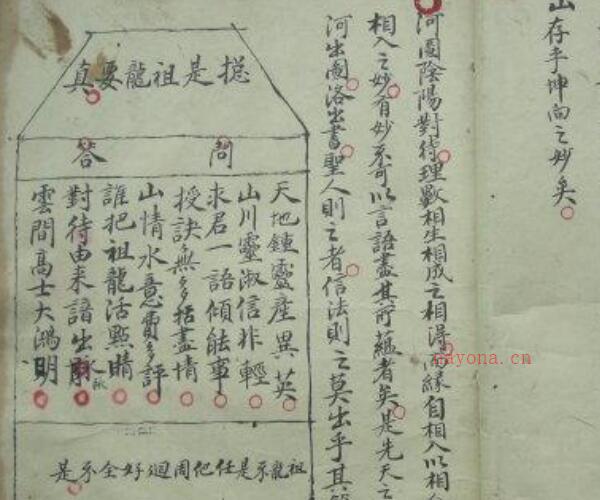 山存乎坤向之妙矣
河圖陰陽對待理數相生相成之相得而緣自相入以相
相入之妙有妙不可以言語盡其所蘊者矣是先天之
河出圖洛出書聖人則之者信法則之莫出乎其
摠是祖龍要真
問答
天地鍾靈產異英
山川靈淑信非輕
求君一語傾能事
授訣無多括盡情
山情水意費多評
誰把祖龍活點睛
對待由来語出
雲間高士大鴻明
祖龍不是任他周迴好全不是
nayona.cn